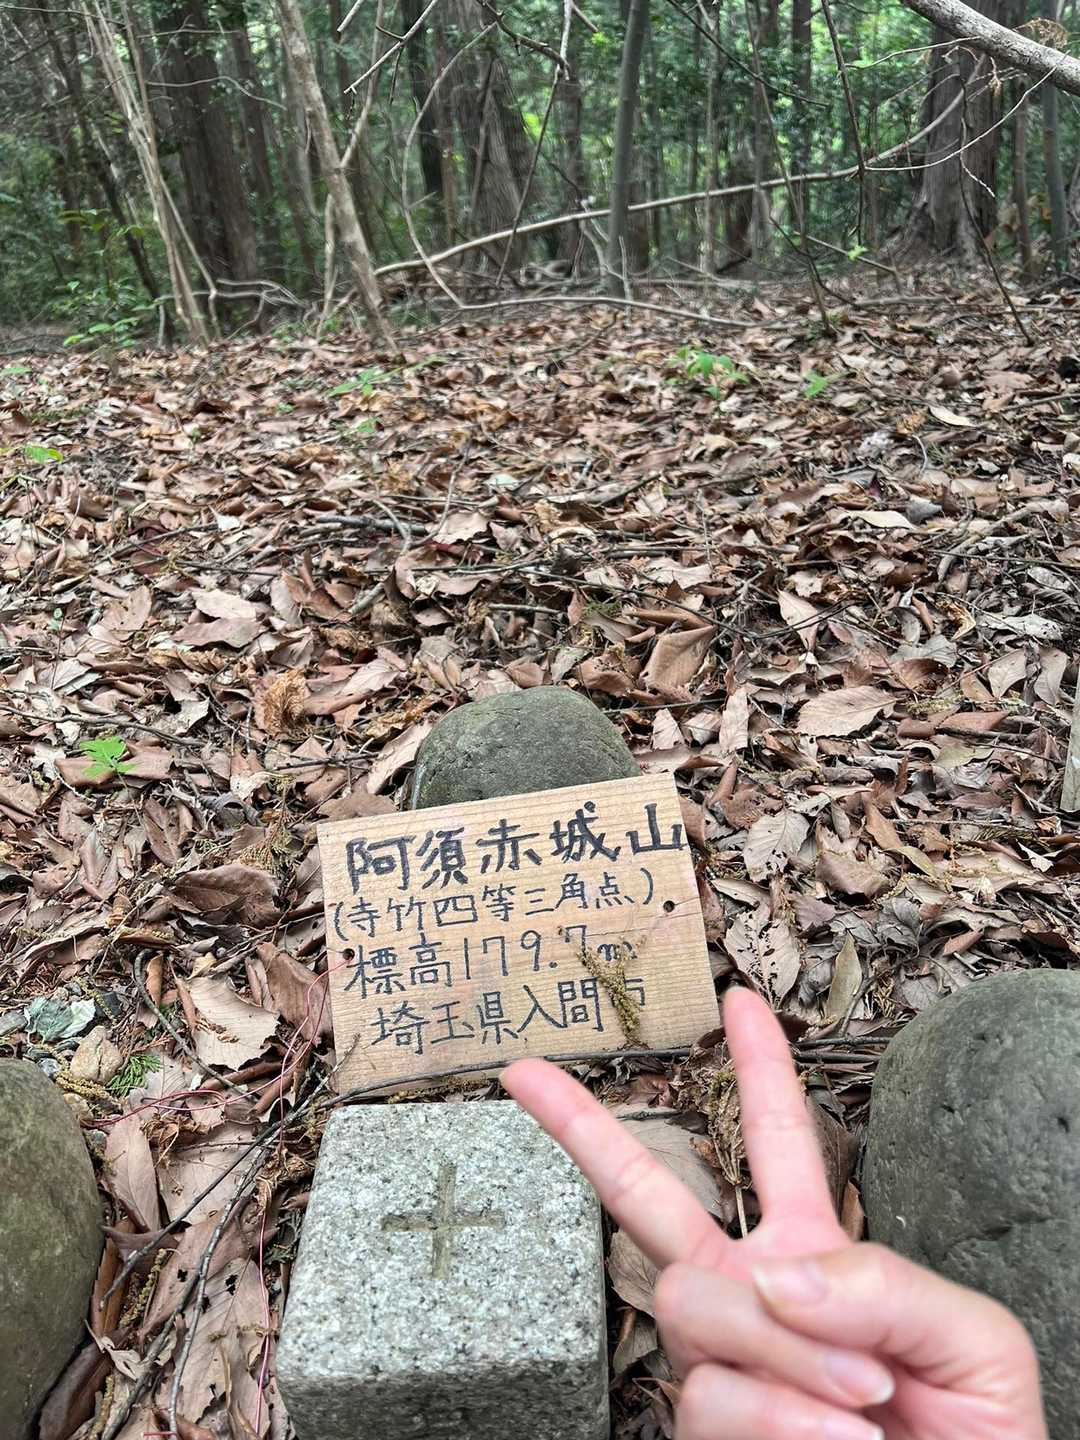 阿須赤城山
(寺竹四等三角点)
標高179.7m
埼玉県入間市